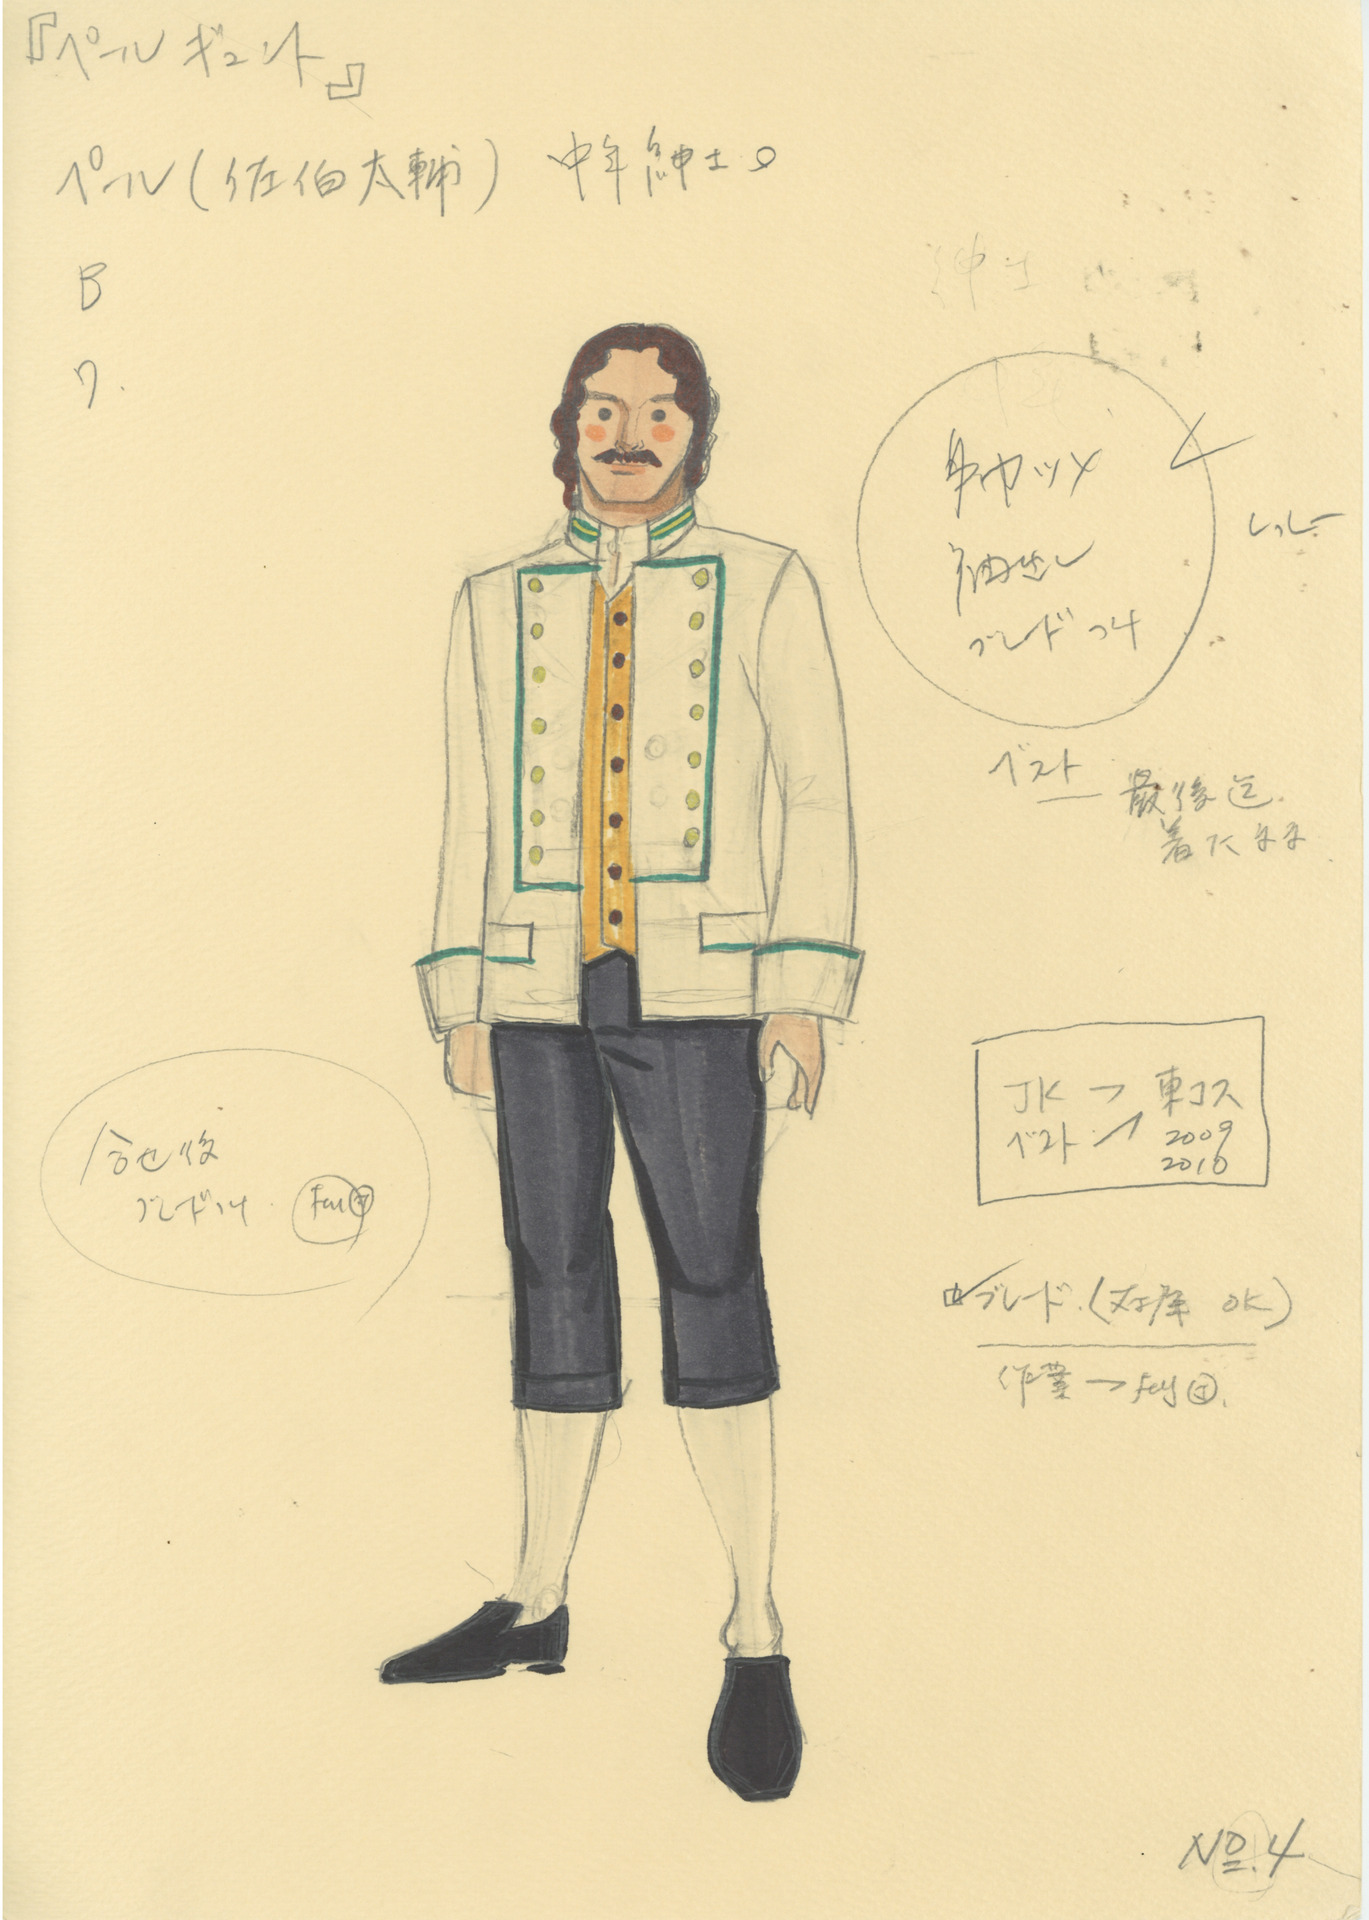 『ペール ギュント』
ペール(佐伯太輔) 中年紳士
B
ワ.
紳士
身巾ツメ
袖出し
ブレード つけ
ベスト
最後迄
着たまま
JK → 東コス
ベスト → 2009
2010
合せ後
ブレード付
ブレード.(在庫 OK)
作業 →
No.4